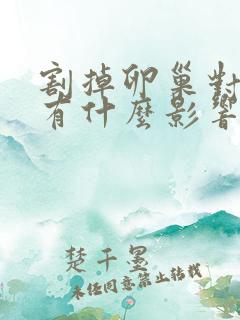 割掉卵巢對
有什麼影響
楚千墨
未经同意禁止转载